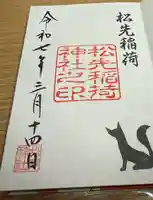 松先稲荷
松先稲荷
神社之印
令和七年三月十四日